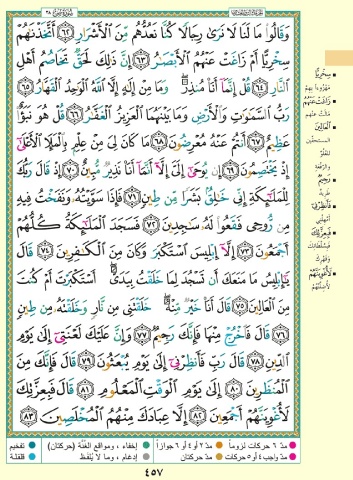 وَقَالُوا۟ مَا لَنَا لَا نَرَىٰ رِجَالًا كُنَّا نَعُدُّهُم مِّنَ ٱلْأَشْرَارِ ﴿٦٢﴾ أَتَّخَذْنَـٰهُمْ
سِخْرِيًّا أَمْ زَاغَتْ عَنْهُمُ ٱلْأَبْصَـٰرُ ﴿٦٣﴾ إِنَّ ذَٰلِكَ لَحَقٌّ تَخَاصُمُ أَهْلِ
ٱلنَّارِ ﴿٦٤﴾ قُلْ إِنَّمَآ أَنَا۠ مُنذِرٌ ۖ وَمَا مِنْ إِلَـٰهٍ إِلَّا ٱللَّهُ ٱلْوَٰحِدُ ٱلْقَهَّارُ ﴿٦٥﴾
رَبُّ ٱلسَّمَـٰوَٰتِ وَٱلْأَرْضِ وَمَا بَيْنَهُمَا ٱلْعَزِيزُ ٱلْغَفَّـٰرُ ﴿٦٦﴾ قُلْ هُوَ نَبَؤٌا۟
عَظِيمٌ ﴿٦٧﴾ أَنتُمْ عَنْهُ مُعْرِضُونَ ﴿٦٨﴾ مَا كَانَ لِىَ مِنْ عِلْمٍۭ بِٱلْمَلَإِ ٱلْأَعْلَىٰٓ
إِذْ يَخْتَصِمُونَ ﴿٦٩﴾ إِن يُوحَىٰٓ إِلَىَّ إِلَّآ أَنَّمَآ أَنَا۠ نَذِيرٌ مُّبِينٌ ﴿٧٠﴾ إِذْ قَالَ رَبُّكَ
لِلْمَلَـٰٓئِكَةِ إِنِّى خَـٰلِقٌۢ بَشَرًا مِّن طِينٍ ﴿٧١﴾ فَإِذَا سَوَّيْتُهُۥ وَنَفَخْتُ فِيهِ
مِن رُّوحِى فَقَعُوا۟ لَهُۥ سَـٰجِدِينَ ﴿٧٢﴾ فَسَجَدَ ٱلْمَلَـٰٓئِكَةُ كُلُّهُمْ
أَجْمَعُونَ ﴿٧٣﴾ إِلَّآ إِبْلِيسَ ٱسْتَكْبَرَ وَكَانَ مِنَ ٱلْكَـٰفِرِينَ ﴿٧٤﴾ قَالَ
يَـٰٓإِبْلِيسُ مَا مَنَعَكَ أَن تَسْجُدَ لِمَا خَلَقْتُ بِيَدَىَّ ۖ أَسْتَكْبَرْتَ أَمْ كُنتَ
مِنَ ٱلْعَالِينَ ﴿٧٥﴾ قَالَ أَنَا۠ خَيْرٌ مِّنْهُ ۖ خَلَقْتَنِى مِن نَّارٍ وَخَلَقْتَهُۥ مِن طِينٍ
﴿٧٦﴾ قَالَ فَٱخْرُجْ مِنْهَا فَإِنَّكَ رَجِيمٌ ﴿٧٧﴾ وَإِنَّ عَلَيْكَ لَعْنَتِىٓ إِلَىٰ يَوْمِ
ٱلدِّينِ ﴿٧٨﴾ قَالَ رَبِّ فَأَنظِرْنِىٓ إِلَىٰ يَوْمِ يُبْعَثُونَ ﴿٧٩﴾ قَالَ فَإِنَّكَ مِنَ
ٱلْمُنظَرِينَ ﴿٨٠﴾ إِلَىٰ يَوْمِ ٱلْوَقْتِ ٱلْمَعْلُومِ ﴿٨١﴾ قَالَ فَبِعِزَّتِكَ
لَأُغْوِيَنَّهُمْ أَجْمَعِينَ ﴿٨٢﴾ إِلَّا عِبَادَكَ مِنْهُمُ ٱلْمُخْلَصِينَ ﴿٨٣﴾
سِخْرِيًّا
مَهْزُوءًا بِهِمْ
زَاغَتْ عَنْهُمْ
مَالَتْ عَنْهُمْ
ٱلْعَالِينَ
المستحقين
للعلو
والرفعة
رَجِيمٌ
طريد
فَأَنظِرْنِىٓ
أمهلني
فَبِعِزَّتِكَ
فبسلطانك
وقهرك
لَأُغْوِيَنَّهُمْ
لأضلنهم
مدّ ٦ حركات لزوماً مدّ ٢ أو ٤ أو ٦ جوازاً إخفاء، ومواقع الغُنَّة (حركتان) تفخيم
مدّ واجب ٤ أو ٥ حركات مدّ حركتان إدغام، وما لا يُلفَظ قلقلة
٤٥٧